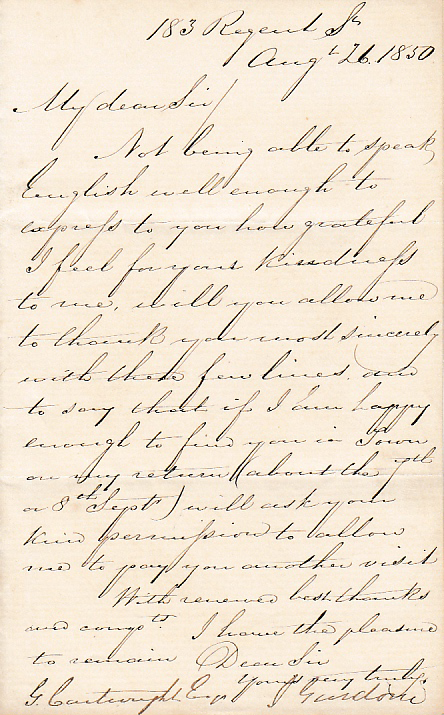 183 Regent St
Augt 26. 1850
My dear Sir/
Not being able to speak
English well enough to
express to you how grateful
I feel for your kindness
to me, will you allow me
to thank you most sincerely
with these few lines, and
to say that if I am happy
enough to find you in Town
on my return (about the 7th
or 8th Septr) will ask your
kind permission to allow
me to pay you another visit
With renewed best thanks
and I have the pleasure
to remain Dear Sir
yours very truly.
G. Cartwright Esq